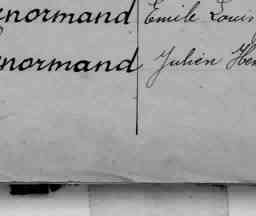 enormand Emile Louis
normand Julien Hen